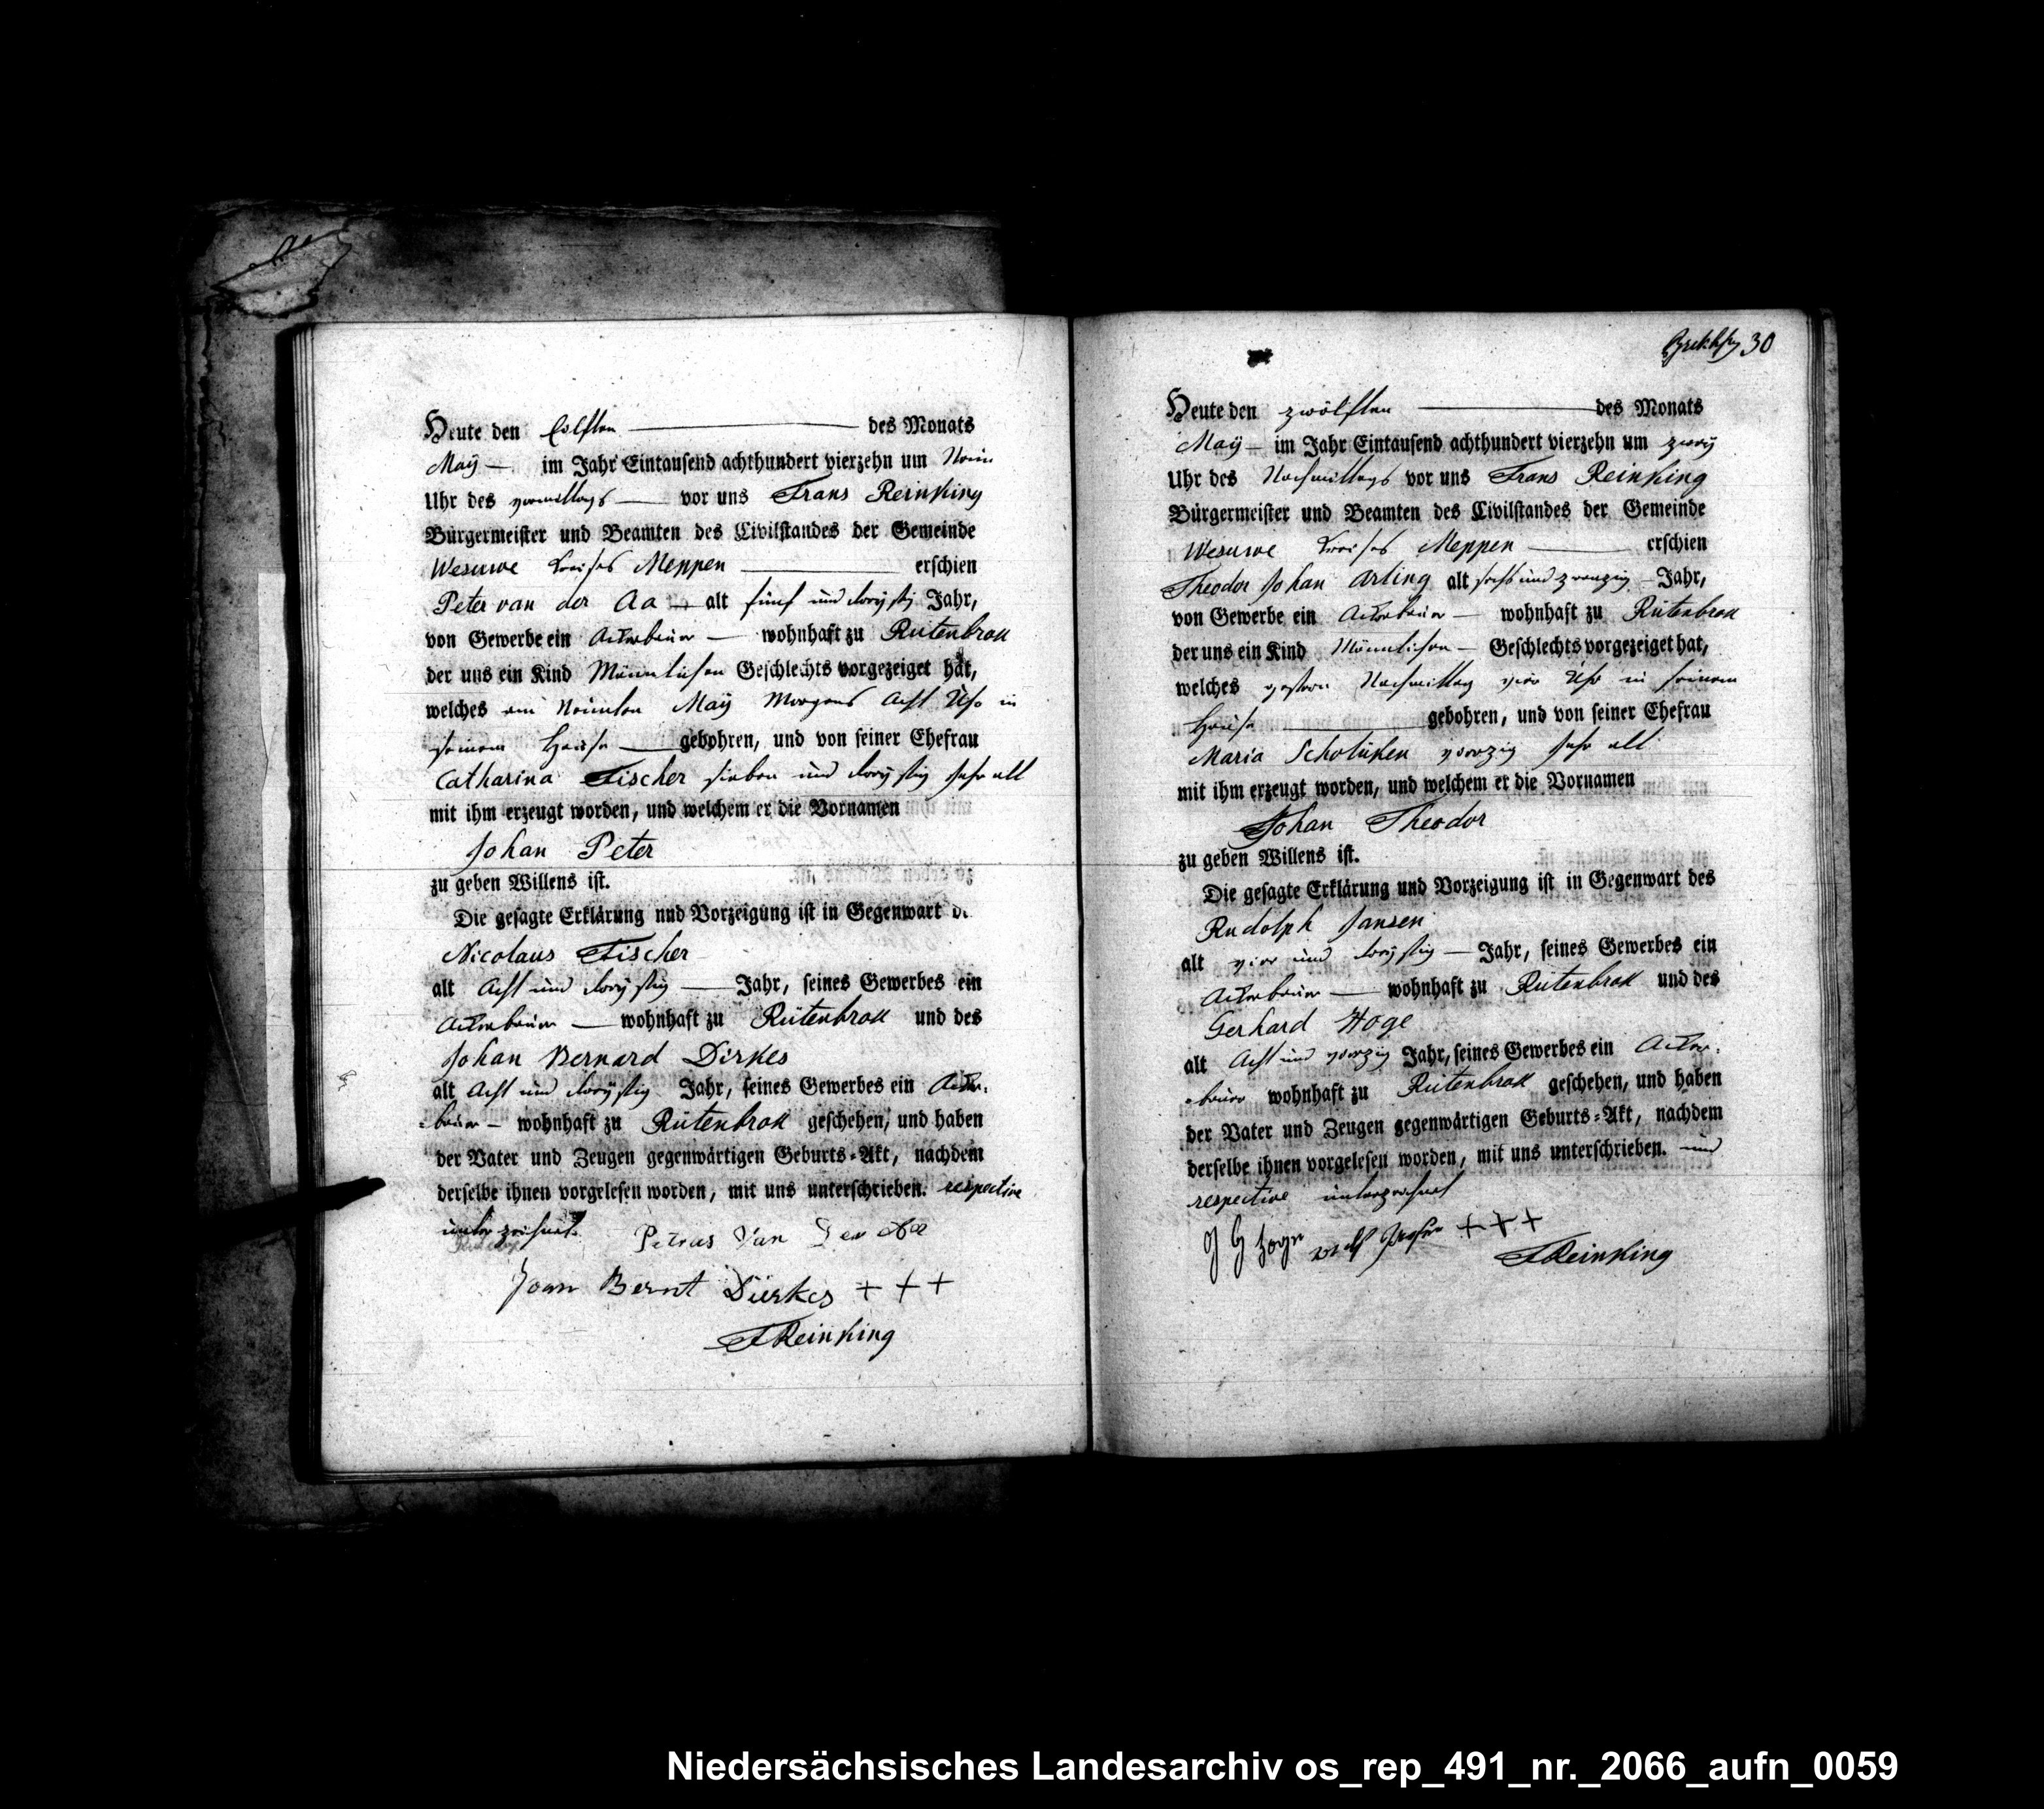 Heute den Eilften des Monats
Maÿ im Jahr Eintausend achthundert vierzehn um Neün
Uhr des vormittags vor uns Frans Reinking
Bürgermeister und Beamten des Civilstandes der Gemeinde
Wesuwe Kreises Meppen erschien
Peter van der Aa alt fünf und dreÿsig Jahr,
von Gewerbe ein Ackerbauer wohnhaft zu Rütenbrok
der uns ein Kind Männlichen Geschlechts vorgezeiget hat,
welches am Neünten Maÿ Morgens Acht Uhr in
seinem Hause gebohren, und von seiner Ehefrau
Catharina Fischer sieben und dreÿsig Jahr alt
mit ihm erzeugt worden, und welchem er die Vornamen
Johan Peter
zu geben Willens ist.
Die gesagte Erklärung nnd Vorzeigung ist in Gegenwart de
Nicolaus Fischer
alt Acht und dreÿsig Jahr, seines Gewerbes ein
Ackerbauer wohnhaft zu Rütenbrok und des
Johan Bernard Dirkes
alt Acht und dreÿsig Jahr, seines Gewerbes ein Acker-
-bauer wohnhaft zu Rütenbrok geschehen, und haben
der Vater und Zeugen gegenwärtigen Geburts-Akt, nachdem
derselbe ihnen vorgelesen worden, mit uns unterschrieben. respective
unterzeichnet. Petrus Van Der Aa
Joan Bernt Dierkes + + +
F Reinking
30
Heute den zwölften des Monats
Maÿ im Jahr Eintausend achthundert vierzehn um zweÿ
Uhr des Nachmittags vor uns Frans Reinking
Bürgermeister und Beamten des Civilstandes der Gemeinde
Wesuwe Kreises Meppen erschien
Theodor Johan Arling alt sechs und zwanzig Jahr,
von Gewerbe ein Ackerbauer wohnhaft zu Rütenbrok
der uns ein Kind Männlichen Geschlechts vorgezeiget hat,
welches gestern Nachmittag vier Uhr in seinem
Hause gebohren, und von seiner Ehefrau
Maria Scholüken vierzig Jahr alt
mit ihm erzeugt worden, und welchem er die Vornamen
Johan Theodor
zu geben Willens ist.
Die gesagte Erklärung und Vorzeigung ist in Gegenwart des
Rudolph Jansen
alt vier und dreÿsig Jahr, seines Gewerbes ein
Ackerbauer wohnhaft zu Rütenbrok und des
Gerhard Hoge
alt Acht und vierzig Jahr, seines Gewerbes ein Acker-
-bauer wohnhaft zu Rütenbrok geschehen, und haben
der Vater und Zeugen gegenwärtigen Geburts-Akt, nachdem
derselbe ihnen vorgelesen worden, mit uns unterschrieben. und
respective unterzeichnet
+ + +
F Reinking
Niedersächsisches Landesarchiv os_rep_491_nr._2066_aufn_0059